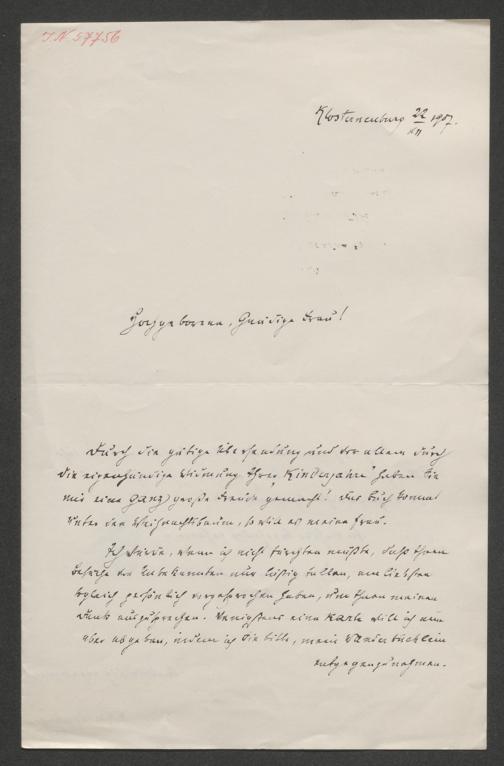 I.N 57756
Klosterneuburg 22/XII 1907.
Hochgeborene, Gnädige Frau!
Durch die gütige Übersendung und vor allem durch
die eigenhändige Widmung Ihrer „Kinderjahre" haben Sie
mir eine ganz große Freude gemacht! Das Buch kommt
unter den Weihnachtsbaum, so will es meine Frau.
Ich würde, wenn ich nicht fürchten müßte, daß Ihnen
Besuche von Unbekannten nur lästig fallen, am liebsten
sogleich persönlich vorgesprochen haben, um Ihnen meinen
Dank auszusprechen. Wenigstens eine Karte will ich nun
aber abgeben, indem ich Sie bitte, mein Wanderbüchlein
entgegenzunehmen.